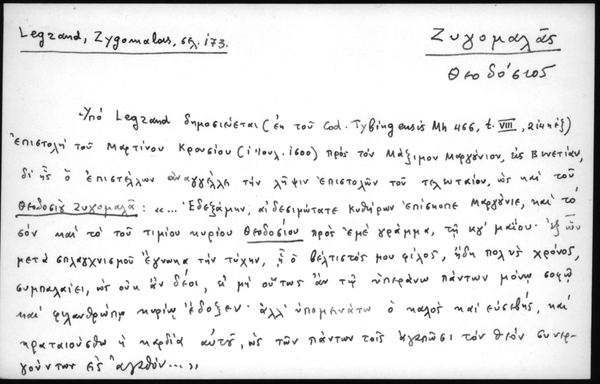 Legrand, Zygomalas, σελ. 173.
Ζυγομαλᾶς
Θεοδόσιος
Ὑπό Legrand δημοσιεύεται (ἐκ τοῦ Cod. Tybingensis Mh 466, t. VIII, 214 κἑξ)
ἐπιστολή τοῦ Μαρτίνου Κρουσίου (1 Ἰουλ. 1600) πρὸς τὸν Μάξιμον Μαργούνιον, εἰς Βενετίαν,
δι' ἧς ὁ ἐπιστέλλων ἀναγγέλλει τὴν λῆψιν ἐπιστολῶν τοῦ τελευταίου, ὡς καὶ τοῦ
Θεοδοσίου Ζυγομαλᾶ : «... Ἐδεξάμην, αἰδεσιμώτατε Κυθήρων ἐπίσκοπε Μαργούνιε, καὶ τὸ
σὸν καὶ τὸ τοῦ τιμίου κυρίου Θεοδοσίου πρὸς ἐμὲ γράμμα, τῇ κγ' μαΐου· ἐξ ὧν
μετὰ σπλαγχνισμοῦ ἔγνωκα τὴν τύχην, ᾗ ὁ βέλτιστός μου φίλος, ἤδη πολὺς χρόνος,
συμπαλαίει, ὡς οὐκ ἂν δέοι, εἰ μὴ οὕτως ἂν τῷ ὑπεράνω πάντων μόνῳ σοφῷ
καὶ φιλανθρώπῳ κυρίῳ ἔδοξεν· ἀλλ' ὑπομενάτω ὁ καλὸς καὶ εὐσεβής, καὶ
κραταιούσθω ἡ καρδία αὐτοῦ, ὡς τῶν πάντων τοῖς ἀγαπῶσι τὸν θεὸν συνερ-
γούντων εἰς ἀγαθόν...»